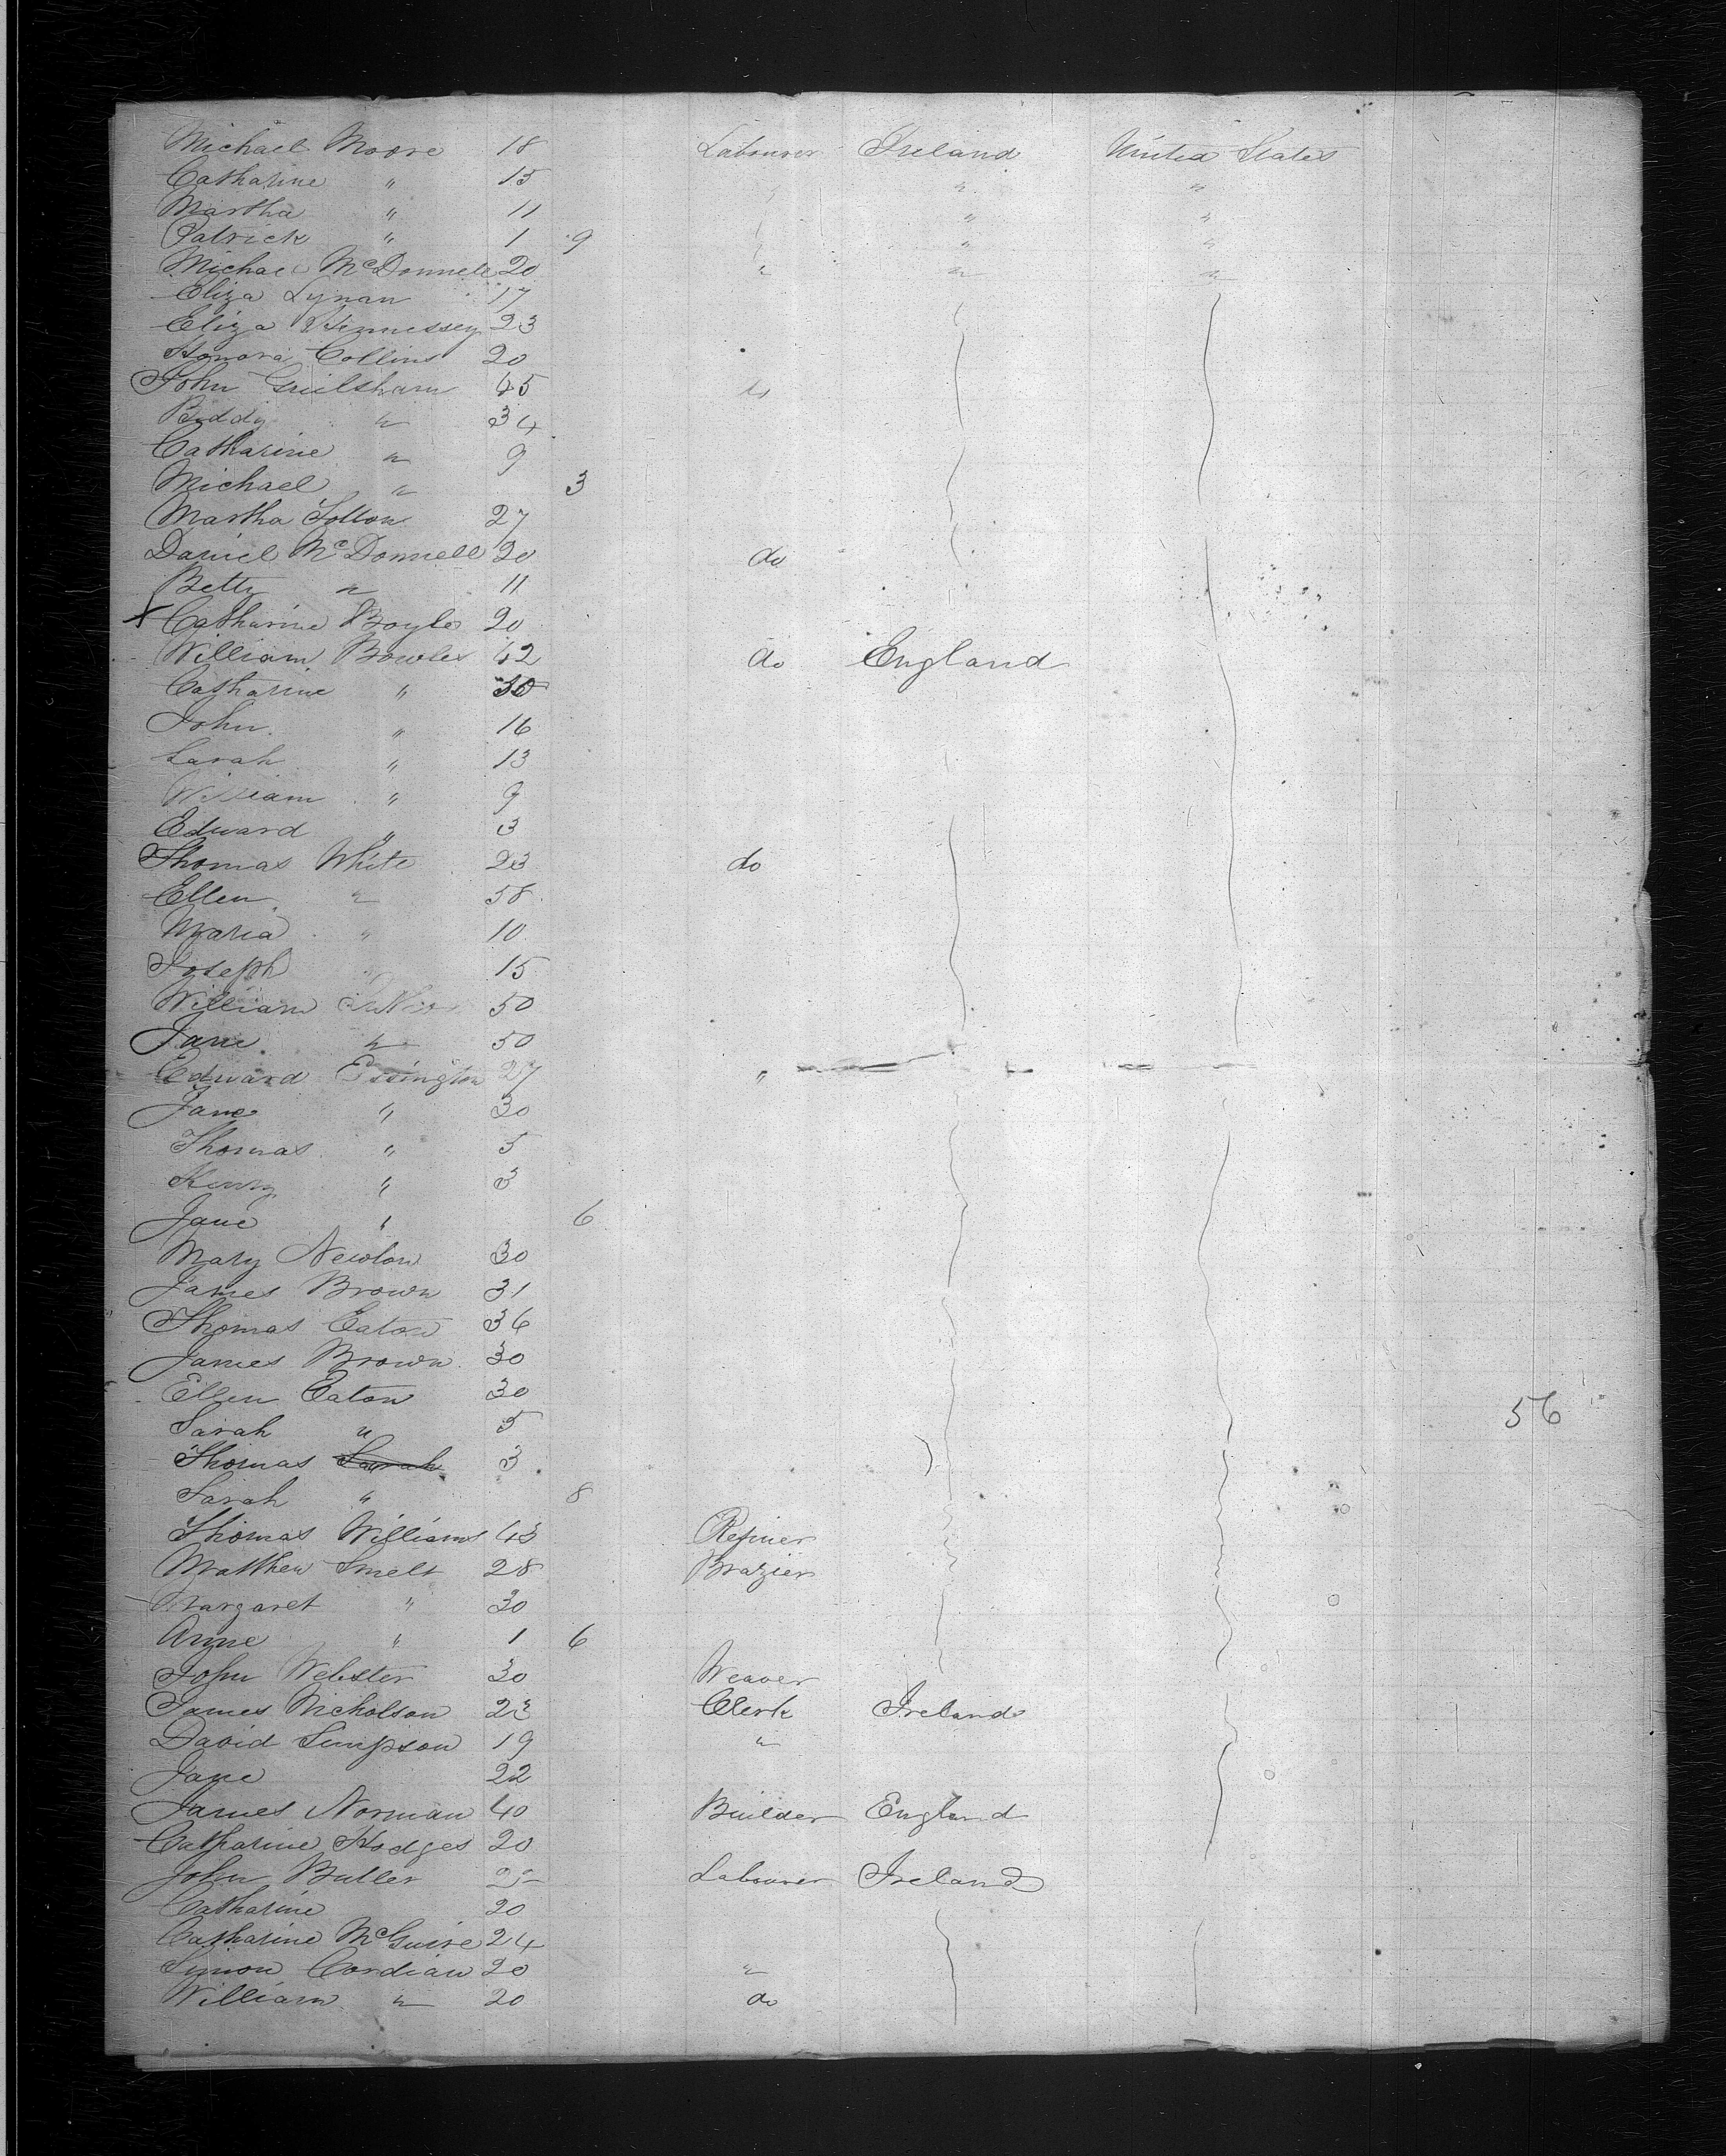 Michael Moore 18 Labourer Ireland United States
Catharine " 15 " "
Martha " 11 " "
Patrick " 1 9 " "
Michael McDonnell 20 " " "
Eliza Lynan 17
Eliza Hennessey 23
Honora Collins 20
John Guilsham 45 do
Biddy " 34
Catharine " 9
Michael " 3
Martha 27
Daniel McDonnell 20 do
Betty " 11
x Catharine Boyle 20
William Bowles 42 do England
Catharine " 30
John " 16
Sarah " 13
William " 9
Edward " 3
Thomas White 23 do
Ellen " 58
Maria " 10
Joseph " 15
William 50
Jane " 50
Edward Essington 27 "
Jane " 30
Thomas " 5
Henry " 3
Jane " 6
Mary Newton 30
James Brown 31
Thomas Eaton 36
James Brown 30
Ellen Eaton 30
Sarah " 5 56
Thomas Sarah 3
Sarah " 8
Thomas Williams 43 Refiner
Matthew Smelt 28 Brazier
Margaret " 30
Anne " 1 6
John Webster 30 Weaver
James Nicholson 23 Clerk Ireland
David Simpson 19 "
Jane 22
James Norman 40 Builder England
Catharine Hodges 20
John Butler Labourer Ireland
Catharine 20
Catharine McGuire 24
Simon Cordian 20 "
William " 20 do